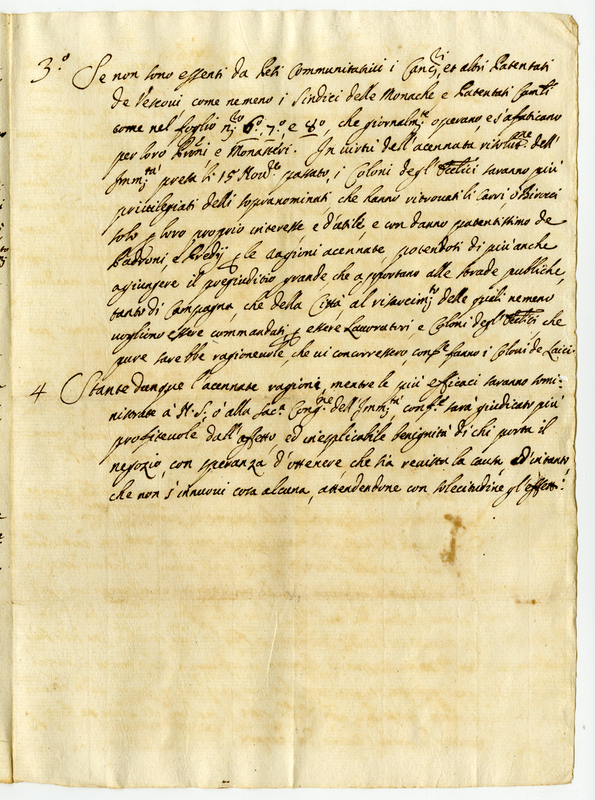 3.º Se non sono essenti da Pesi Communitativi i Canc.ri, et altri Patentati
de Vescovi come nemeno i Sindici delle Monache e Patentati
come nel foglio n.º 6º, 7º, e 8º, che giornalm.te operano, e s'afaticano
per loro Pr̃oni e Monasteri. In virtù dell'acennata risoluz.ne dell'
Imm.tà presa li 15 Nov.e passato, i Coloni degl' saranno più
privilegiati delli sopranominati che hanno ritrovati li Carri, o Birocci
solo p loro proprio interesse e d'utile e con danno patentissimo de
Padroni, e Predij p le ragioni acennate, potendosi di più anche
agiungere il pregiudicio grande che apportano alle strade publiche,
tanto di Campagna, che della Città, al risarcim.to delle quali nemeno
vogliono essere commandati p essere Lavorativi, e Coloni degl' che
pure sarebbe ragionevole, che vi concorressero, conf.e fanno i Coloni de Laici.
4 Stante dunque l'acennate ragioni, mentre le più efficaci saranno somi-
nistrate à N. S. ò alla Sac.a Cong.ne dell'Imm.tà, conf.e sarà giudicato più
profitevole dall'affetto ed inesplicabile benignità di chi porta il
negozio, con speranza d'ottenere che sia revista la causa, ed intanto,
che non s'innuovi cosa alcuna, attendendone con solecitudine gl'effetti.